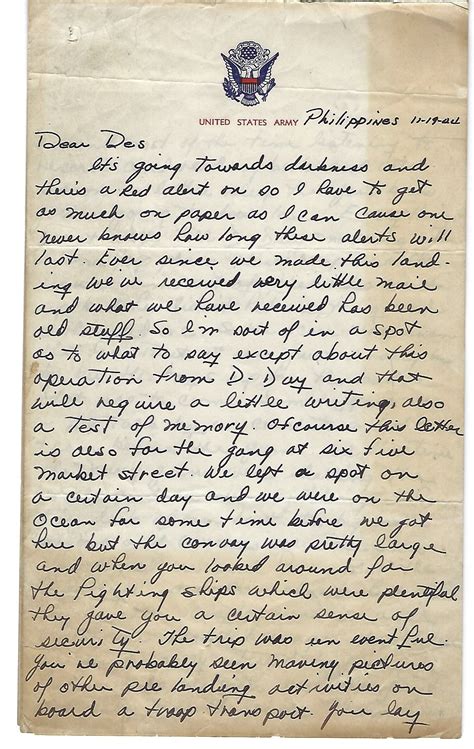 UNITED STATES ARMY Philippines 11-19-44
Dear Des
It's going towards darkness and
there's a Red alert on so I have to get
as much on paper as I can cause one
never knows how long these alerts will
last. Ever since we made this land-
ing we've received very little mail
and what we have received has been
old stuff. So I'm sort of in a spot
as to what to say except about this
operation from D-Day and that
will require a little writing, also
a Test of memory. Ofcourse this letter
is also for the gang at six five
market street. We left a spot on
a certain day and we were on the
Ocean for some time before we got
here but the convoy was pretty large
and when you looked around for
the fighting ships which were plentiful
they gave you a certain sense of
security. The trip was un event ful.
You've probably seen moving pictures
of other pre landing activities on
board a troop transport. You lay